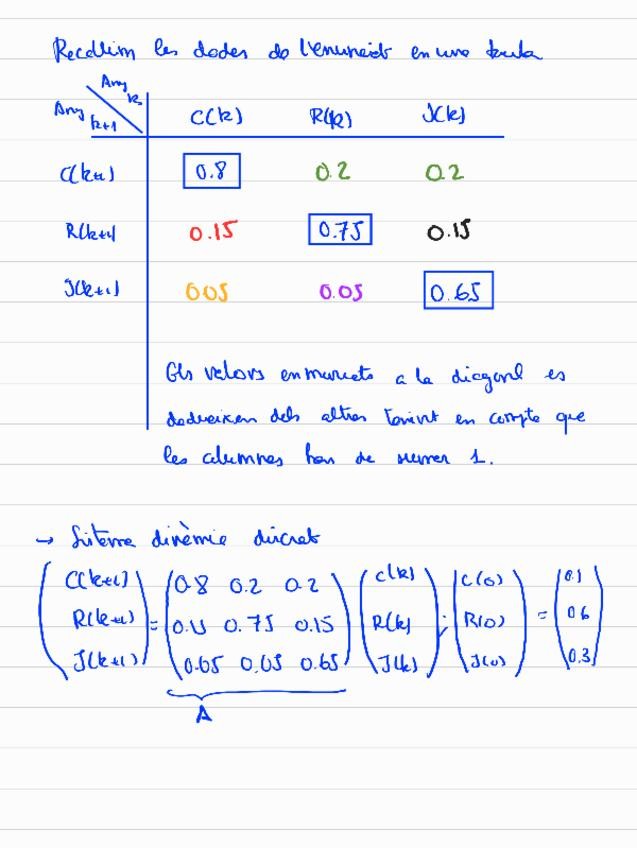 Recollim les dades de l'enunciat en una taula
Any k
Any k+1
C(k) R(k) J(k)
C(k+1) 0.8 0.2 0.2
R(k+1) 0.15 0.75 0.15
J(k+1) 0.05 0.05 0.65
Els valors enmarcats a la diagonal es
dedueixen dels altres tenint en compte que
les columnes han de sumar 1.
→ Sistema dinàmic discret
C(k+1) 0.8 0.2 0.2 C(k) C(0) 0.1
R(k+1) = 0.15 0.75 0.15 R(k) ; R(0) = 0.6
J(k+1) 0.05 0.05 0.65 J(k) J(0) 0.3
A